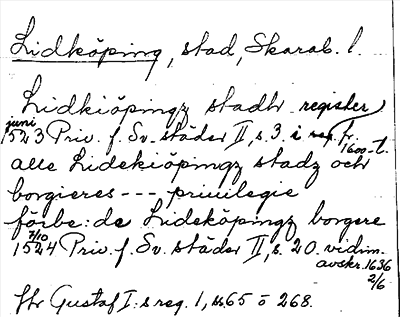 Lidköping, stad, Skarab. l.
Lidkiöpingz stadtz register
juni
1523 Priv. f. Sv. städer II, s. 3. i reg. fr.
1600-t.
alle Lidekiöpingz stadz och
borgieres --- priuilegie
förbe:de Lideköpingz borgere
7/10
1524 Priv. f. Sv. städer II, s. 20. vidim.
avskr. 1636
2/6
Gustaf I:s reg. 1, ss. 65 o 268.